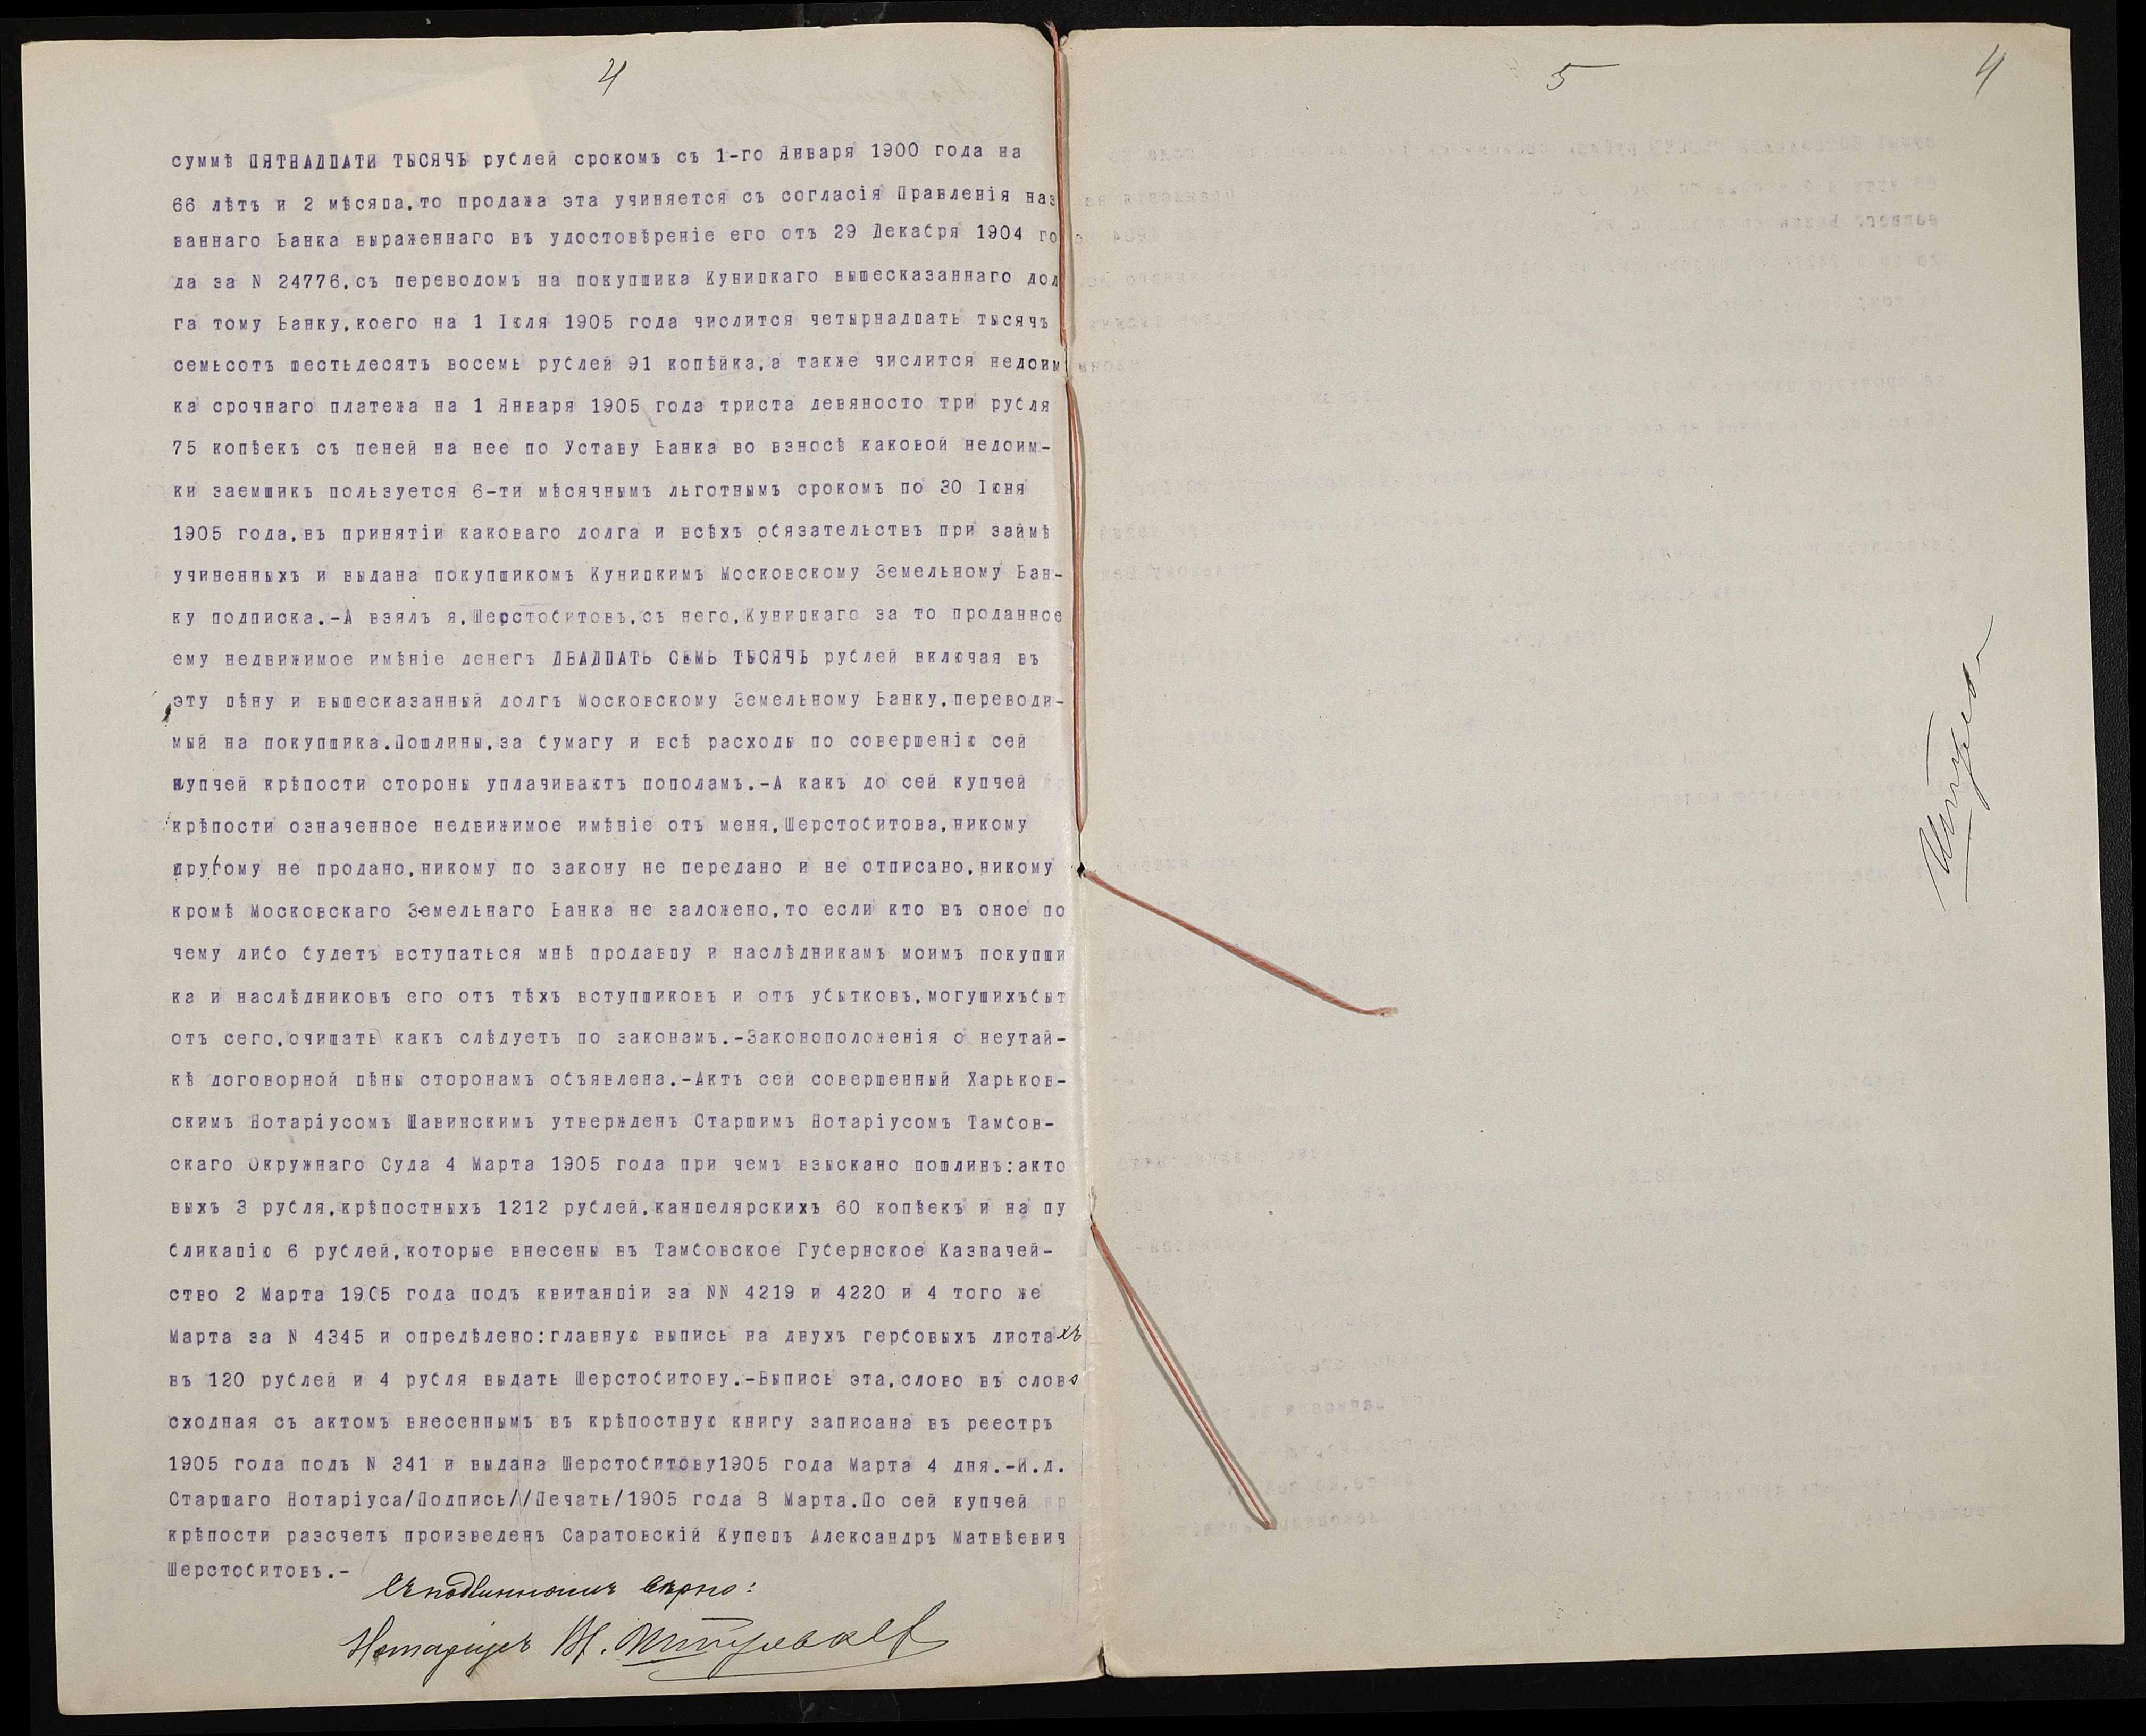 4
суммѣ ПЯТНАДЦАТИ ТЫСЯЧЪ рублей срокомъ съ 1-го Января 1900 года на
66 лѣтъ и 2 мѣсяца,то продажа эта учиняется съ согласія Правленія наз
ваннаго Банка выраженнаго въ удостовѣреніе его отъ 29 Декабря 1904 го
да за N 24776,съ переводомъ на покупщика Куницкаго вышесказаннаго дол
га тому Банку,коего на 1 Іюля 1905 года числится четырнадцать тысячъ
семьсотъ шестьдесятъ восемь рублей 91 копѣйка,а также числится недоим
ка срочнаго платежа на 1 Января 1905 года триста девяносто три рубля
75 копѣекъ съ пеней на нее по Уставу Банка во взносѣ каковой недоим-
ки заемщикъ пользуется 6-ти мѣсячнымъ льготнымъ срокомъ по 30 Іюня
1905 года,въ принятіи каковаго долга и всѣхъ обязательствъ при займѣ
учиненныхъ и выдана покупщикомъ Куницкимъ Московскому Земельному Бан-
ку подписка.-А взялъ я,Шерстобитовъ,съ него,Куницкаго за то проданное
ему недвижимое имѣніе денегъ ДВАДЦАТЬ СЕМЬ ТЫСЯЧЪ рублей включая въ
эту цѣну и вышесказанный долгъ Московскому Земельному Банку,переводи-
мый на покупщика.Пошлины,за бумагу и всѣ расходы по совершенію сей
купчей крѣпости стороны уплачиваютъ пополамъ.-А какъ до сей купчей
крѣпости означенное недвижимое имѣніе отъ меня,Шерстобитова,никому
другому не продано,никому по закону не передано и не отписано,никому
кромѣ Московскаго Земельнаго Банка не заложено,то если кто въ оное по
чему либо будетъ вступаться мнѣ продавцу и наслѣдникамъ моимъ покупщи
ка и наслѣдниковъ его отъ тѣхъ вступщиковъ и отъ убытковъ,могущихъбыт
отъ сего,очищать какъ слѣдуетъ по законамъ.-Законоположенія о неутай-
кѣ договорной цѣны сторонамъ объявлена.-Актъ сей совершенный Харьков-
скимъ Нотаріусомъ Шавинскимъ утвержденъ Старшимъ Нотаріусомъ Тамбов-
скаго Окружнаго Суда 4 Марта 1905 года при чемъ взыскано пошлинъ:акто
выхъ 3 рубля,крѣпостныхъ 1212 рублей,канцелярскихъ 60 копѣекъ и на пу
бликацію 6 рублей,которые внесены въ Тамбовское Губернское Казначей-
ство 2 Марта 1905 года подъ квитанціи за NN 4219 и 4220 и 4 того же
Марта за N 4345 и опредѣлено:главную выпись на двухъ гербовыхъ листахъ
въ 120 рублей и 4 рубля выдать Шерстобитову.-Выпись эта,слово въ слово
сходная съ актомъ внесеннымъ въ крѣпостную книгу записана въ реестръ
1905 года подъ N 341 и выдана Шерстобитову1905 года Марта 4 дня.-И.д.
Старшаго Нотаріуса/Подпись//Печать/1905 года 8 Марта.По сей купчей
крѣпости разсчетъ произведенъ Саратовскій Купецъ Александръ Матвѣевич
Шерстобитовъ.-
Съ подлиннымъ вѣрно:
Нотаріусъ
5
4